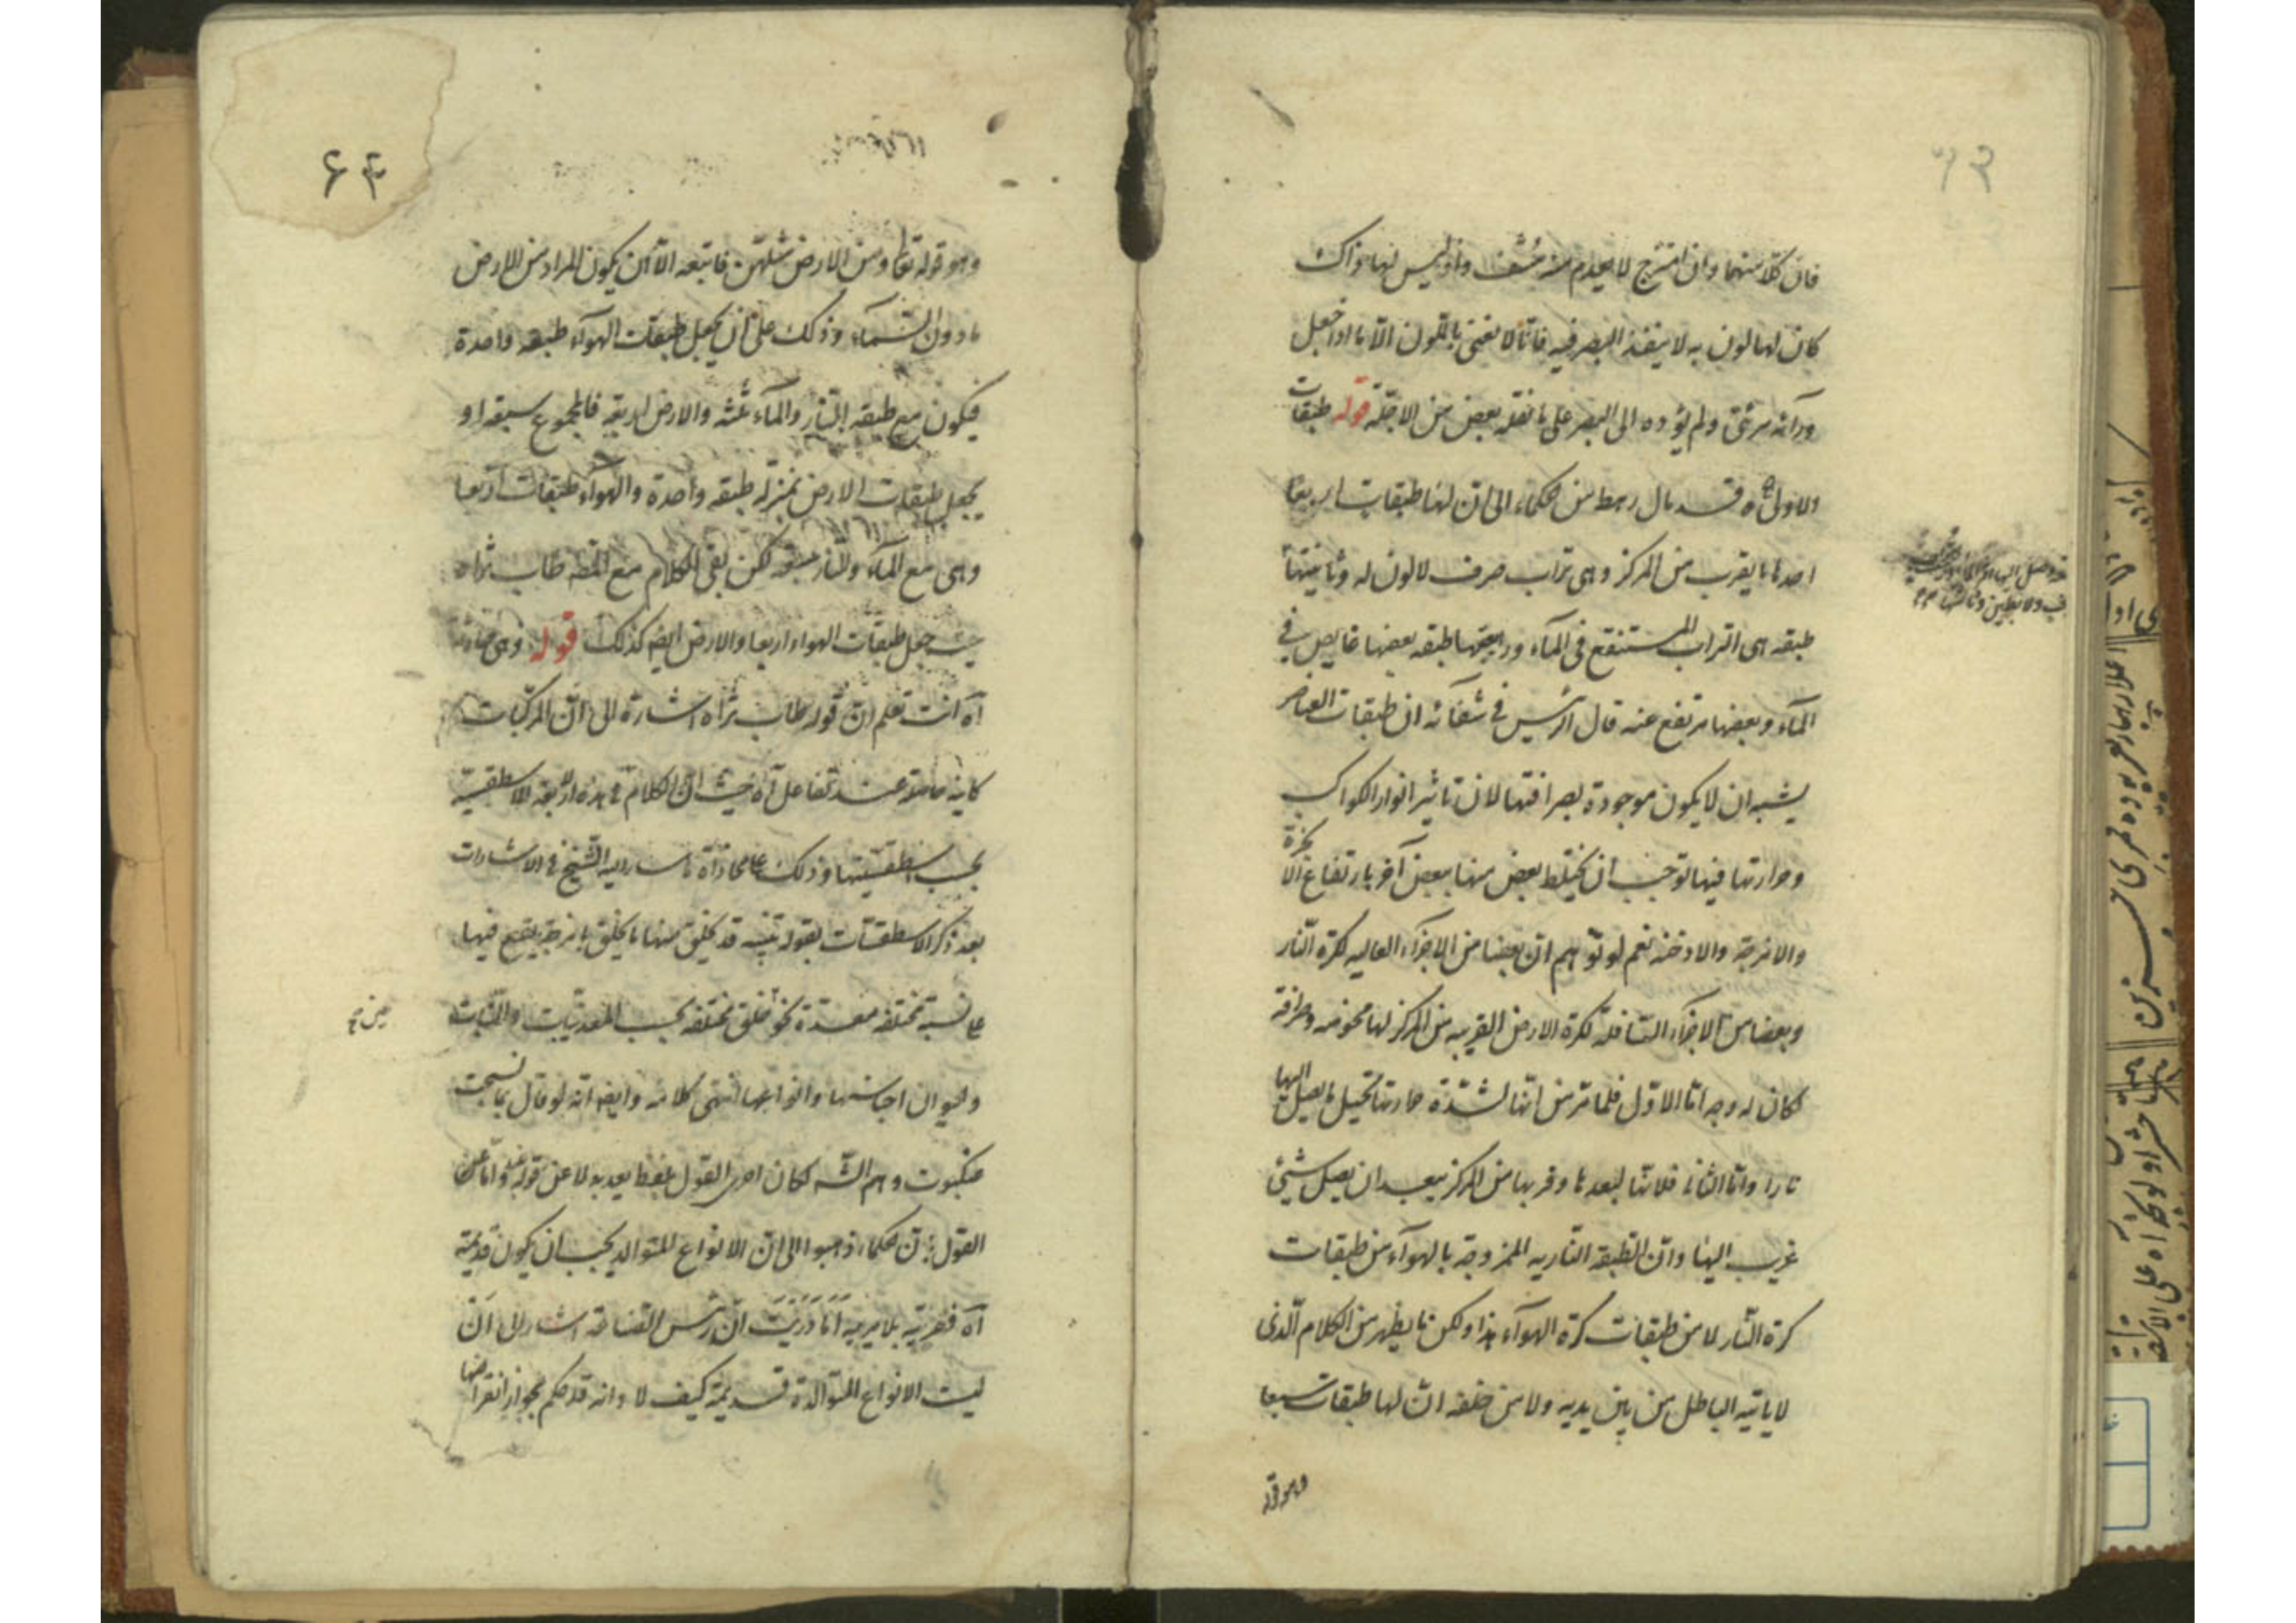 فان كلا منهما وان امتزج لا يعدم منه مشف واذ ليس لها ذاك
كان لها لون به لا ينفذ البصر فيه فانا لا نعنى باللون الا ما اذا جعل
ورآئه مرئى ولم يؤده الى البصر على ما نقله بعض من الاجلة قوله طبقات
والاولى آه قد مال رهط من حكماء الى ان لها طبقات اربعا
احدها ما يقرب من المركز وهى تراب صرف لا لون له وثانيتها
طبقه هى التراب المستنقع فى المآء ورابعتها طبقه بعضها غايص فى
المآء وبعضها مرتفع عنه قال الرئيس فى شفائه ان طبقات العناصر
يشبه ان لا يكون موجودة بصرافتها لان تاثير انوار الكواكب
وحرارتها فيها توجب ان يختلط بعض منها ببعض آخر بارتفاع الابخرة
والامزجة والادخنه نعم لو توهم ان بعضا من الاجزآء العاليه لكرة النار
وبعضا من الاجزآء السافلة لكرة الارض القريبه من المركز لها محوضه وصرافة
لكان له وجه اما الاول فلما مر من انها لشدة حرارتها تحيل ما يصل اليها
نارا واما الثانى فلانها لبعدها وقربها من المركز يبعد ان يصل شيئ
غريب اليها وان الطبقه الناريه الممزوجة بالهوآء من طبقات
كرة النار لا من طبقات كرة الهوآء هذا ولكن ما يظهر من الكلام الذى
لا ياتيه الباطل من بين يديه ولا من خلفه ان لها طبقات سبعا
وهو قوله
٦٤
وهو قوله تعالى ومن الارض مثلهن فاتبعه الا ان يكون المراد من الارض
ما دون السمآء وذلك على ان يجعل طبقات الهوآء طبقه واحدة
فيكون مع طبقه النار والمآء ثلثه والارض اربعة فالمجموع سبعة او
يجعل طبقات الارض بمنزلة طبقه واحدة والهوآء طبقات اربعا
وهى مع المآء والنار ستة لكن بقى الكلام مع المصه طاب ثراه
حيث جعل طبقات الهواء اربعا والارض ايض كذلك قوله وهى حادثة
آه انت تعلم ان قوله طاب ثراه اشارة الى ان المركبات
كاينه حاملة عند تفاعل آه حيث ان الكلام فى هذه الاربعة الاسطقسيه
بحسب اسطقسيتها وذلك على محاذاة ما اشار اليه الشيخ فى الاشارات
بعد ذكر الاسطقسات بقوله تنبيه قد يخلق منها ما يخلق بامزجة يقع فيها
على نسبة مختلفه معدة نحو خلق مختلفه بحسب المعدنيات والنبات
والحيوان اجناسها وانواعها انتهى كلامه وايضا انه لو قال بما نسجت
عنكبوت وهم الشه لكان احرى القول بلفظ يعد به لا عن قوله واما
القول بان حكماء ذهبوا الى ان الانواع المتوالد يجب ان يكون قديمة
آه ففرية بلا مرية اما دريت ان رئيس الصناعة اشار الى ان
ليست الانواع المتوالدة قديمة كيف لا وانه قد حكم بجواز انقراضها